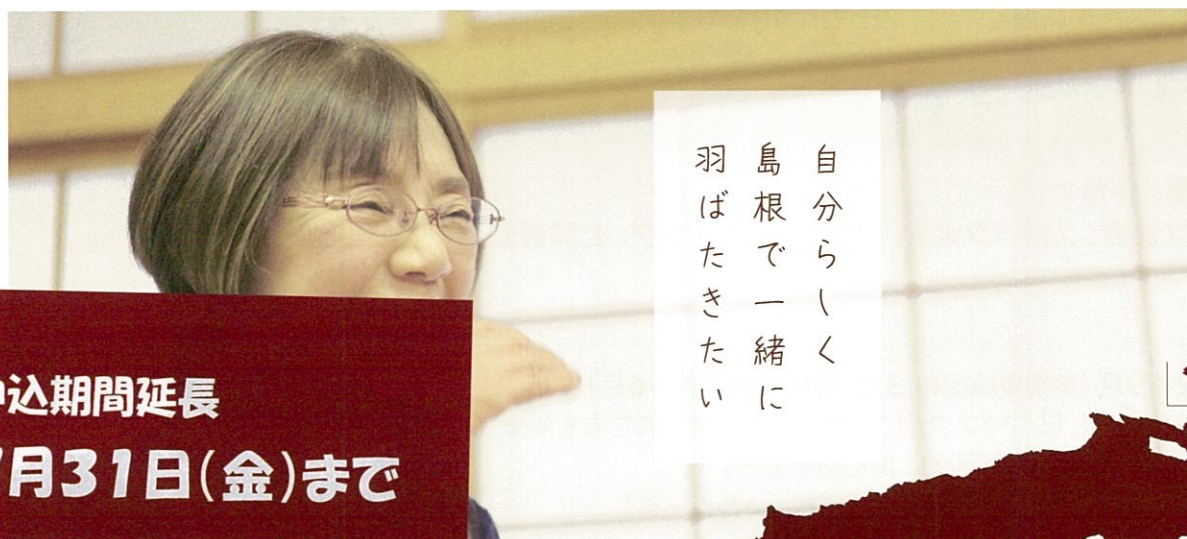 自分らしく
島根で一緒に
羽ばたきたい
込期間延長
月31日(金)まで